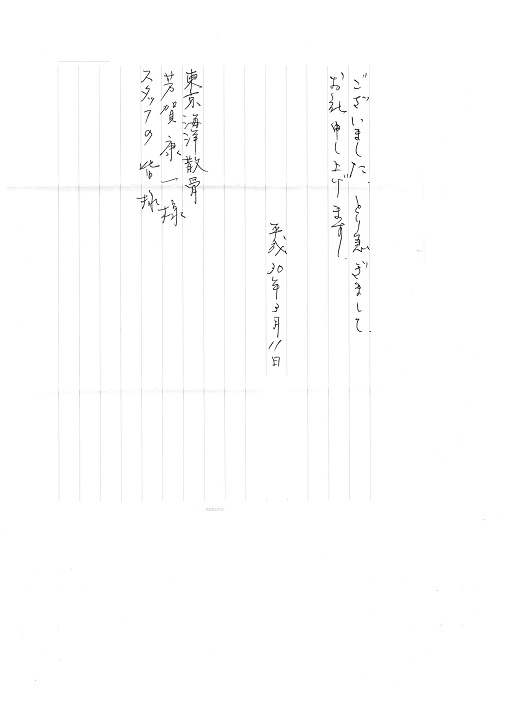 ございました。とり急ぎまして、
お礼申し上げます。
平成30年3月11日
東京海洋散骨
芳賀康一様
スタッフの皆様